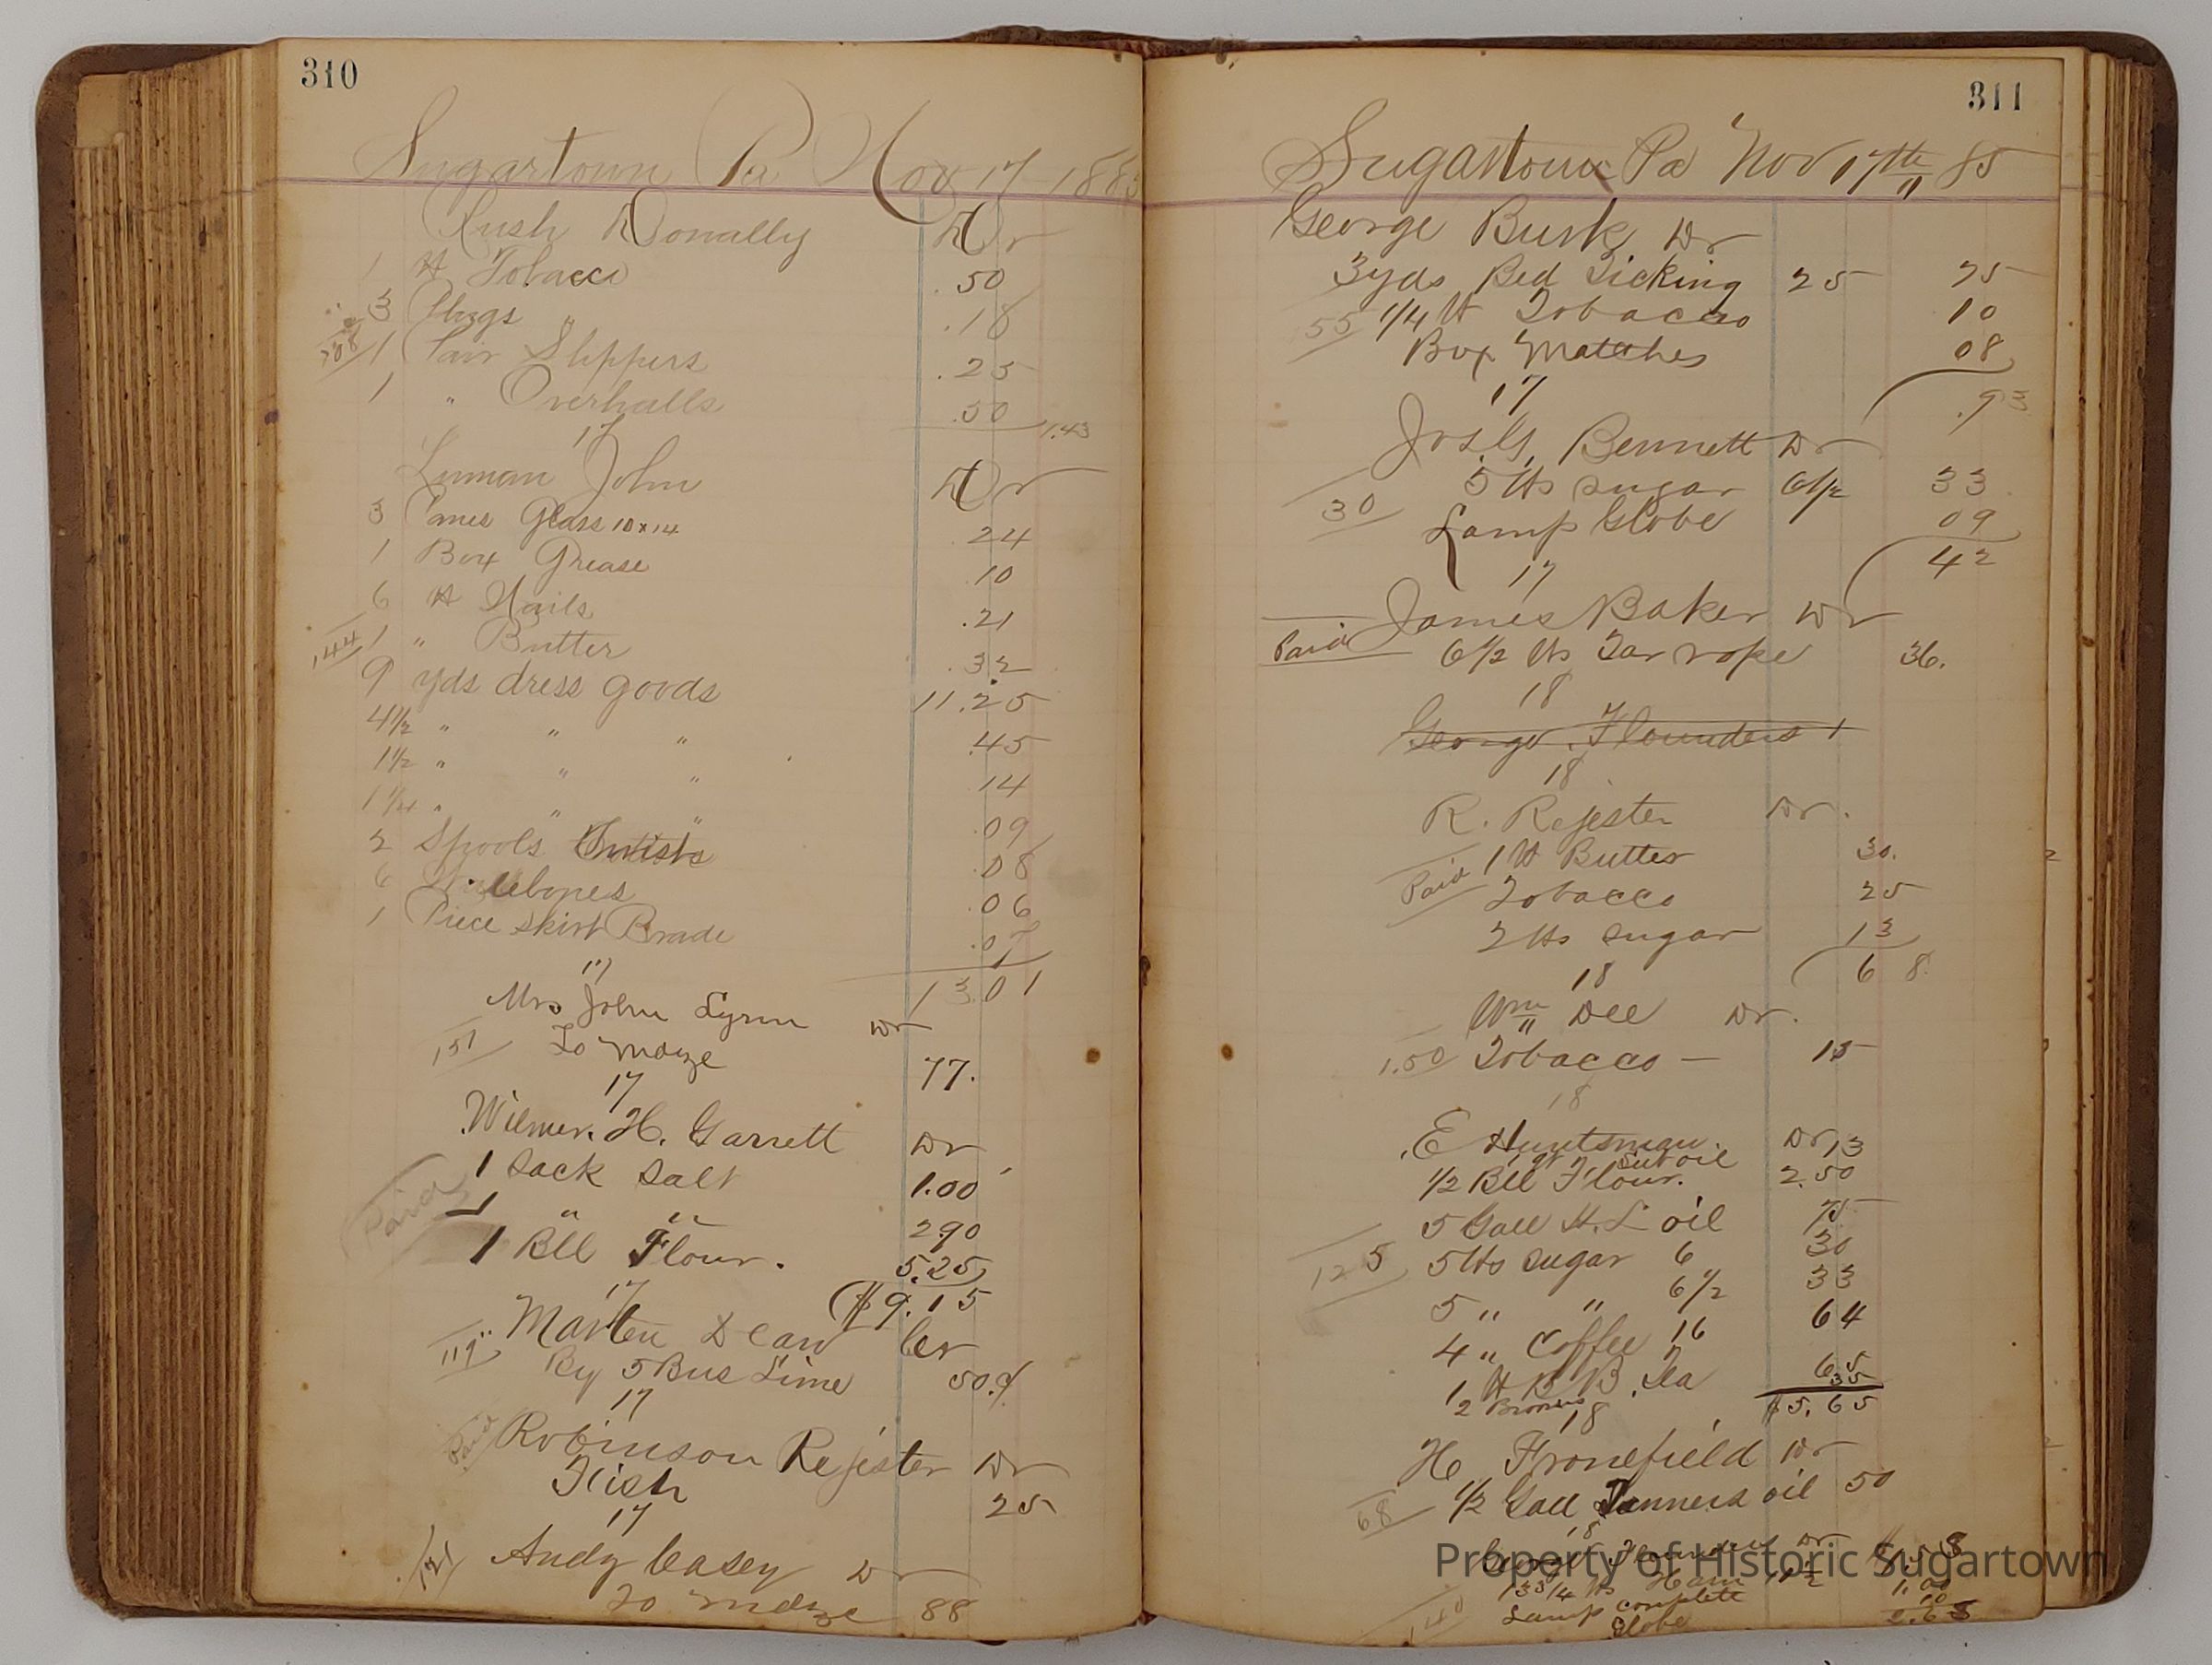 310
Sugartown Pa Nov 17 1885
Rush Donally Dr
1 lb Tobacco .50
3 Plugs .18
288 1 Pair Slippers .25
1 " Overhalls .50 1.43
17
Luman John Dr
3 Panes Glass 10x14 .24
1 Box Grease .10
6 lb Nails .21
144 1 " Butter .32
9 yds dress goods 11.25
4 1/2 " " " .45
1 1/2 " " " 14
1 1/4 " " " .09
2 Spools .08
6 .06
1 Piece skirt Brade .07
17 13.01
Mrs John Lynn Dr
151 To Mdze 77.
17
Wilmer. H. Garrett Dr
Paid 1 Sack Salt 1.00
1 " " 2.90
1 Bll Flour. 5.25
17 $9.15
Marten Dean Cr
119 By 5 Bus Lime 50.
17
Paid Robinson Rejester Dr
Fish 25
17
121 Andy Casey Dr
To Mdze 88
311
Sugartown Pa Nov 17th 85
George Burk Dr
3 yds Bed Ticking 25 75
55 1/4 lb Tobacco 10
Box Matches 08
17 .93
Jos. G. Bennett Dr
5 lbs sugar 6 1/2 33
30 Lamp Globe 09
17 42
James Baker Dr
Paid 6 1/2 lbs Tar rope 36.
18
George Flounders
18
R. Rejester Dr.
1 lb Butter 30.
Paid Tobacco 25
2 lbs sugar 13
18 68
Wm Dee Dr.
1.50 Tobacco — 15
18
E Huntsman. Dr 13
oil
1/2 Bll Flour. 2.50
5 Gall H. L oil 75
125 5 lbs sugar 6 30
5 " " 6 1/2 33
4 " Coffee 16 64
1 lb B B. Tea 65
2 Brooms 35
18 $5.65
H Fronefield Dr
68 1/2 Gall Tanners oil 50
18
George Flounders Dr
13 3/4 lbs Ham 11 1/2 1.58
140 Lamp complete 1.00
Globe 10
2.68
Property of Historic Sugartown